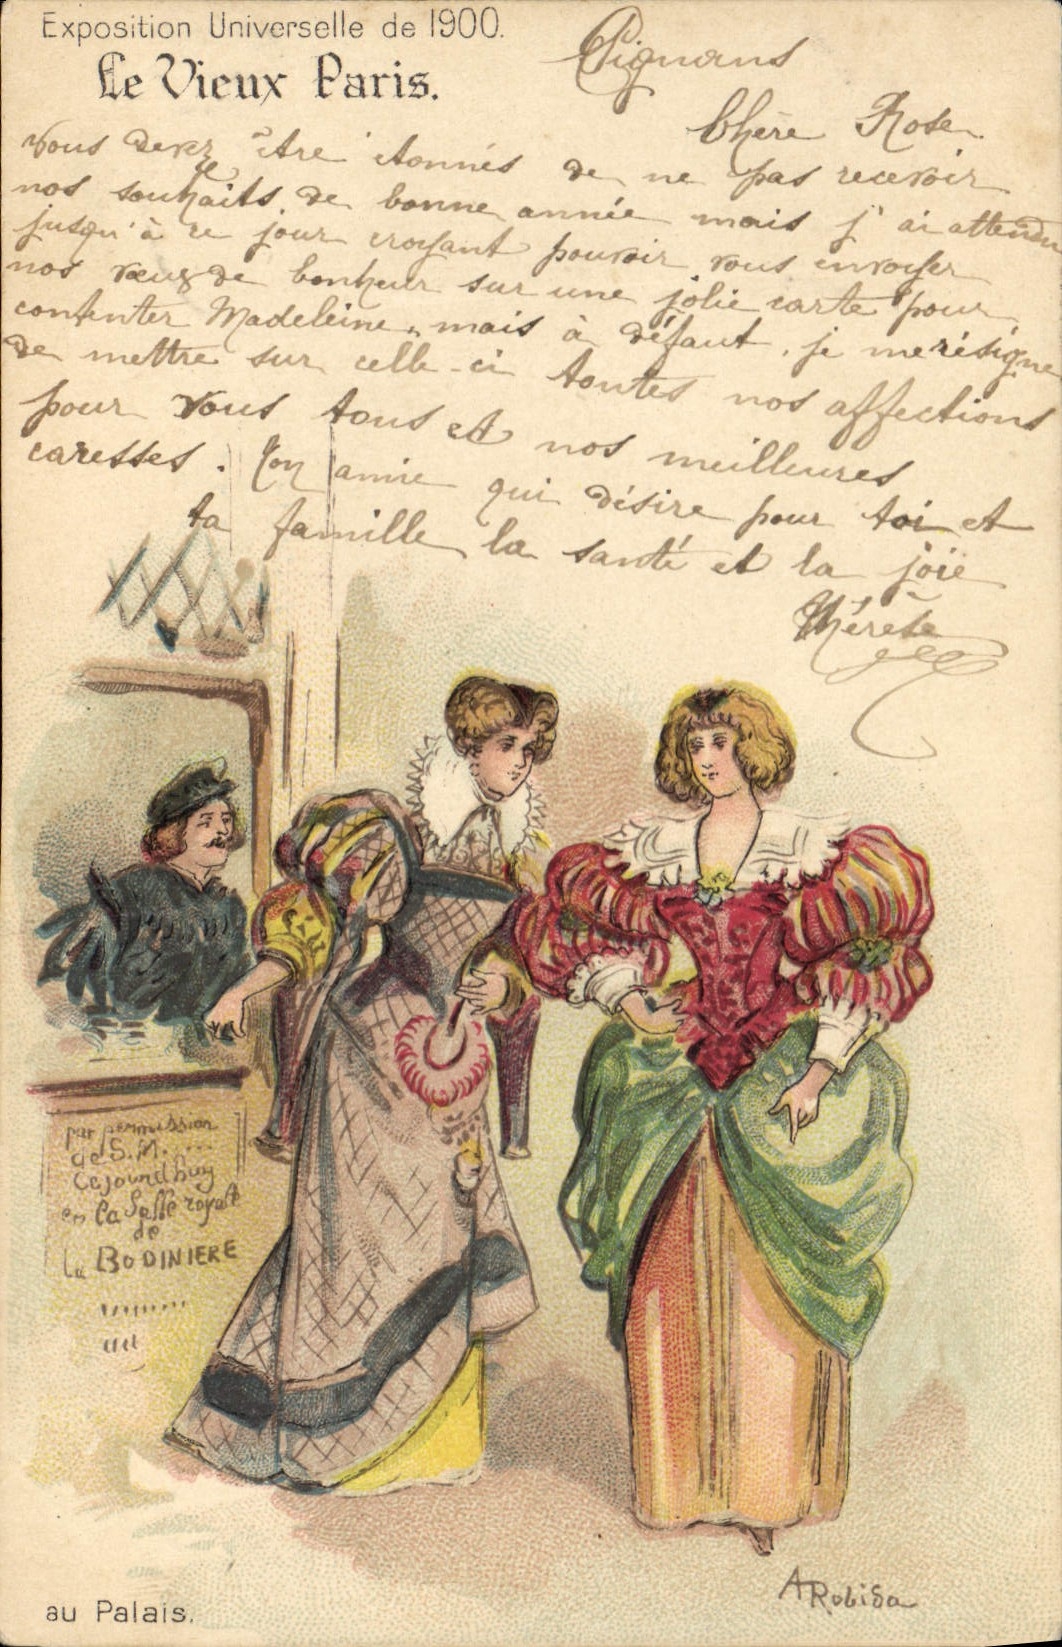 Exposition Universelle de 1900.
Le Vieux Paris.
Pignans
Chère Rose
Vous devez être étonnés de ne pas recevoir
nos souhaits de bonne année mais j'ai attendu
jusqu'à ce jour croyant pouvoir vous envoyer
nos vœux de bonheur sur une jolie carte pour
contenter Madeleine, mais à défaut, je me résigne
de mettre sur celle-ci toutes nos affections
pour vous tous et nos meilleures
caresses. Ton amie qui désire pour toi et
ta famille la santé et la joie
Thérèse
par permission
de S.M. ...
Cejourdhuy
en la Salle royale
de
La BODINIERE
au Palais.
A Robida